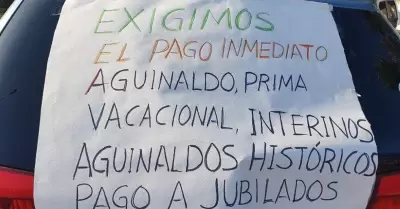 EXIGIMOS
EL PAGO INMEDIATO
AGUINALDO, PRIMA
VACACIONAL, INTERINOS
AGUINALDOS HISTÓRICOS
PAGO A JUBILADOS